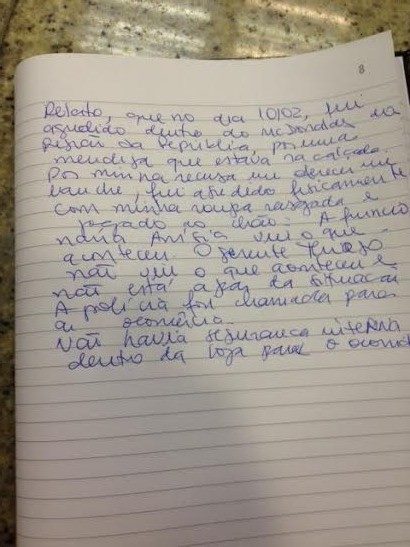 8
Relato, que no dia 10/02, fui
agredido dentro do McDonalds na
Região da República, por uma
mendiga que estava na calçada.
Por minha recusa em oferecer um
lanche, fui agredido fisicamente
com minha roupa rasgada e
jogado no chão. A funcio
nária viu o que
aconteceu. O gerente
não viu o que aconteceu e
não está a par da situação
A polícia foi chamada para
a ocorrência.
Não havia segurança interna
dentro da loja para o